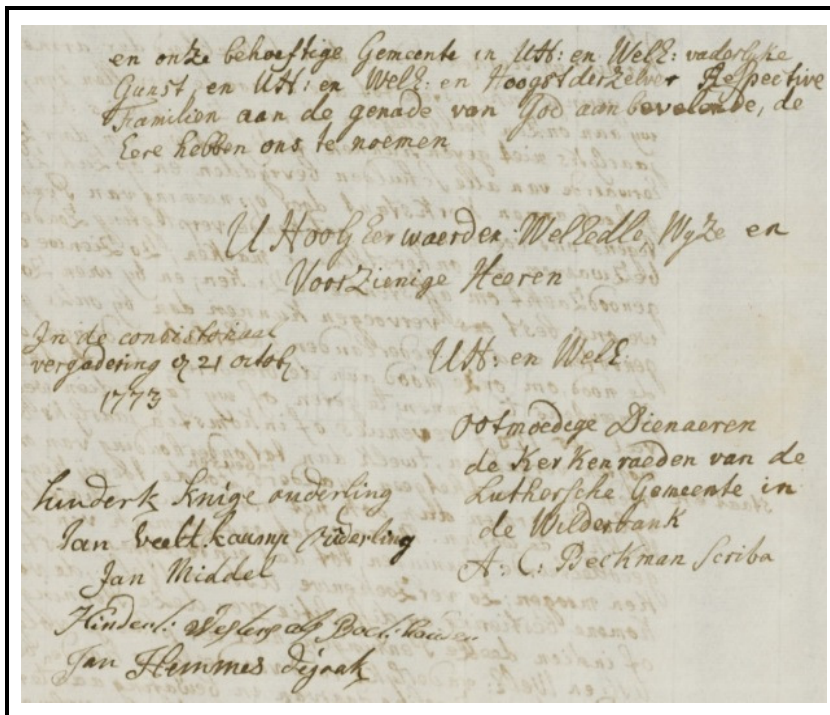 en onze behoeftige Gemeente in UH: en WelE: vaderlyke
Gunst en UH: en WelE: en Hoogst derzelver Respective
Familien aan de genade van God aanbevelende, de
Eere hebben ons te noemen
U HoogEerwaerden. WelEdle, Wyze en
Voorzienige Heeren
In de consistoriaal
vergadering 21 octob
1773
UH: en WelE:
ootmoedege Dienaeren
de Kerkenraeden van de
Luthersche Gemeente in
de Wilderbank
A: C: Beckman Scriba
hinderk Knige ouderling
Jan Veltkamp ouderling
Jan Middel
Hinderk als Boekhouder
Jan Hemmes